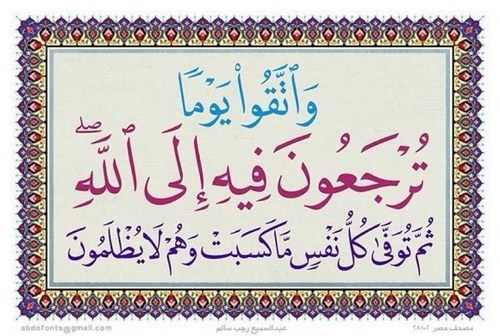 وَٱتَّقُوا۟ يَوْمًا
تُرْجَعُونَ فِيهِ إِلَى ٱللَّهِ ۖ
ثُمَّ تُوَفَّىٰ كُلُّ نَفْسٍ مَّا كَسَبَتْ وَهُمْ لَا يُظْلَمُونَ
abdofonts@gmail.com عبدالسميع رجب سالم مصحف مصر